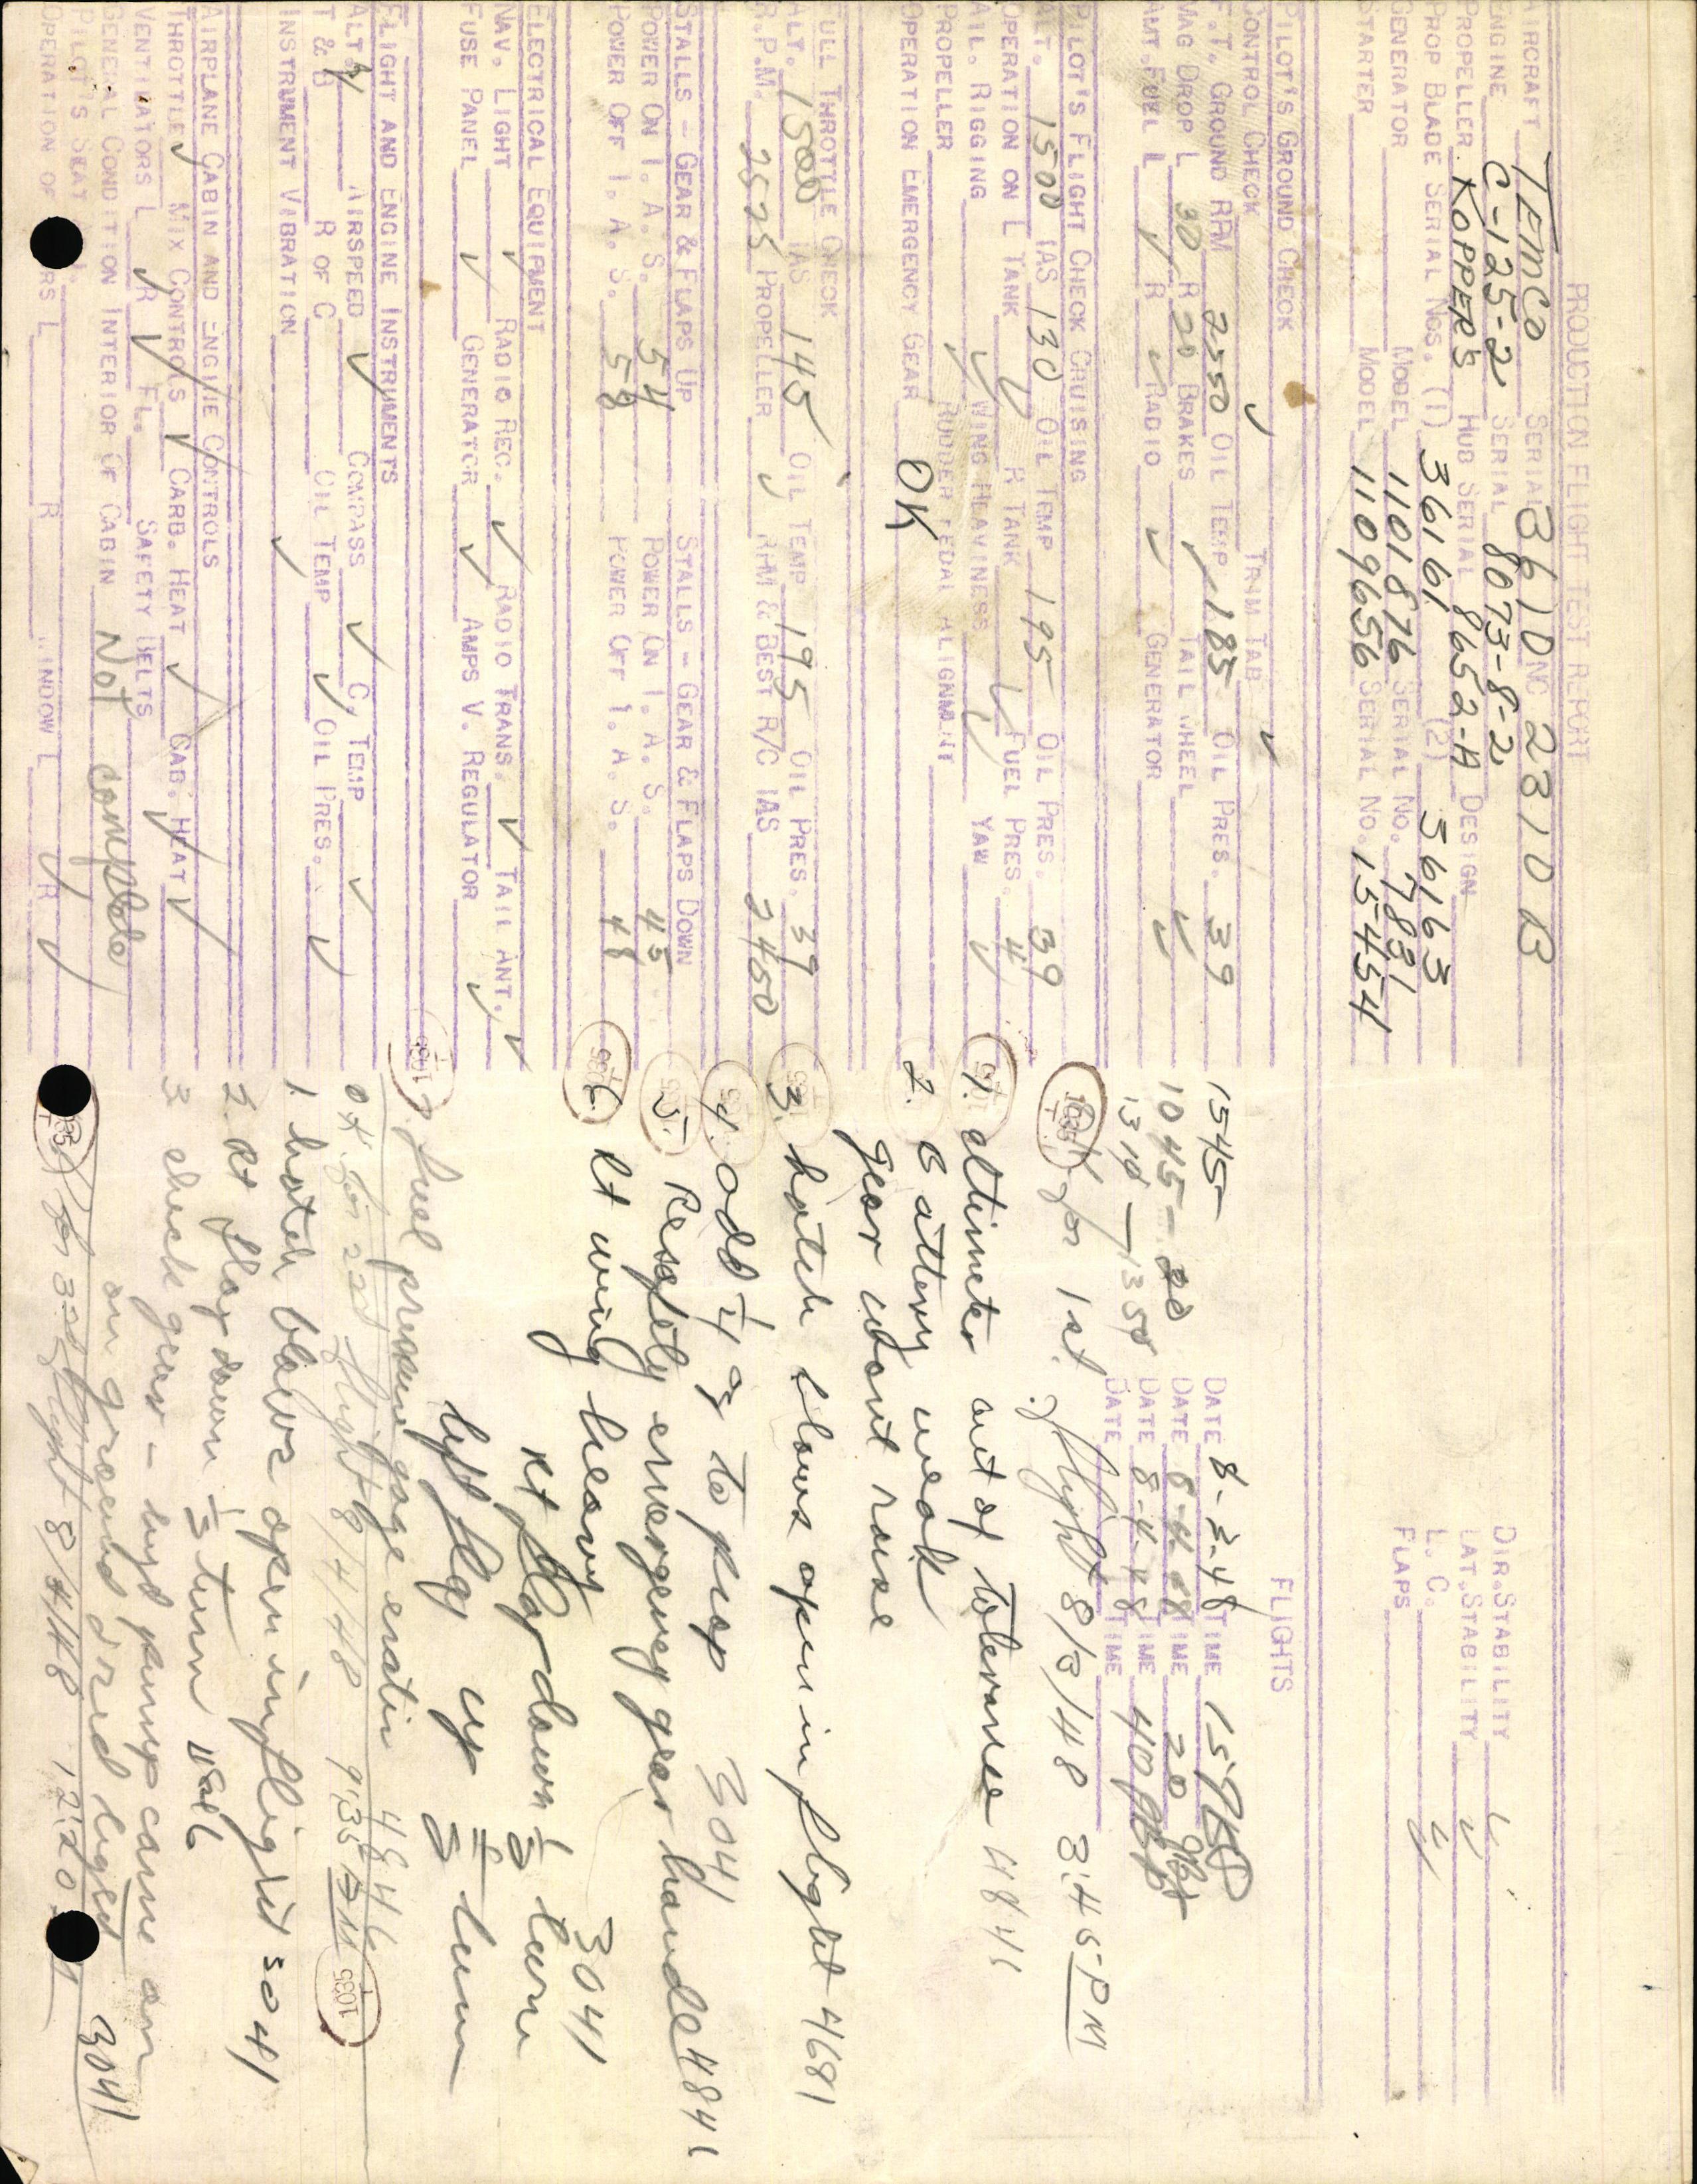 PRODUCTION FLIGHT TEST REPORT
AIRCRAFT TEMCO SERIAL 3610 NC 2310 B
ENGINE C-125-2 SERIAL 8073-8-2
PROPELLER KOPPERS HUB SERIAL 8652-A DESIGN
PROP BLADE SERIAL NOS. (1) 36161 (2) 36163
GENERATOR MODEL 1101876 SERIAL NO. 7831
STARTER MODEL 1109656 SERIAL NO. 15-4541
DIR. STABILITY
LAT. STABILITY ✓
L. C. ✓
FLAPS
PILOT'S GROUND CHECK
CONTROL CHECK ✓ TRIM TAB ✓
F.T. GROUND RPM 2250 OIL TEMP 185 OIL PRES. 39
MAG DROP L 30 R 20 BRAKES ✓ TAIL WHEEL ✓
AMT. FUEL L ✓ R ✓ RADIO ✓ GENERATOR ✓
FLIGHTS
1545 DATE 8-3-48 TIME
1045 DATE 8-4-48 TIME 20
1310 - 1350 DATE 8-4-48 TIME 40
DATE TIME
PILOT'S FLIGHT CHECK CRUISING
ALT. 1500 IAS 130 OIL TEMP 195 OIL PRES. 39
OPERATION ON L TANK ✓ R TANK ✓ FUEL PRES. 4
AIL. RIGGING ✓ WING HEAVINESS ✓ YAW ✓
PROPELLER RUDDER PEDAL ALIGNMENT
OPERATION EMERGENCY GEAR OK
FULL THROTTLE CHECK
ALT. 1500 IAS 145 OIL TEMP 195 OIL PRES. 39
R.P.M. 2525 PROPELLER ✓ RPM & BEST R/C IAS 2450
STALLS - GEAR & FLAPS UP STALLS - GEAR & FLAPS DOWN
POWER ON I. A. S. 54 POWER ON I. A. S. 45
POWER OFF I. A. S. 58 POWER OFF I. A. S. 48
ELECTRICAL EQUIPMENT
NAV. LIGHT ✓ RADIO REC. ✓ RADIO TRANS. ✓ TAIL ANT. ✓
FUSE PANEL ✓ GENERATOR ✓ AMPS V. REGULATOR ✓
FLIGHT AND ENGINE INSTRUMENTS
ALT. ✓ AIRSPEED ✓ COMPASS ✓ C. TEMP ✓
T & B R OF C OIL TEMP ✓ OIL PRES. ✓
INSTRUMENT VIBRATION ✓
AIRPLANE CABIN AND ENGINE CONTROLS
THROTTLE ✓ MIX CONTROLS ✓ CARB. HEAT ✓ CAB. HEAT ✓
VENTILATORS L ✓ R ✓ FL. SAFETY BELTS ✓
GENERAL CONDITION INTERIOR OF CABIN Not complete
PILOT'S SEAT
OPERATION OF RS L R WINDOW L ✓ R ✓
OK for 1st flight 8/3/48 3:45 PM
1. altimeter out of tolerance 4841
2. Battery weak
gear wont raise
3. hatch blows open in flight 4681
4. add 1/4 qt to prop 3041
5. Resafety emergency gear handle 4841
6. Rt wing heavy 3041
Rt flap down 1/3 turn
left flap up 1/3 turn
7. fuel pressure gage eratic 4846
OK for 2nd flight 8/4/48 9:35 AM
1. hatch blows open inflight 3041
2. Rt flap down 1/3 turn
3. check gear - hyd pump came on
on ground
3041
for 3rd flight 8/4/48 12:20